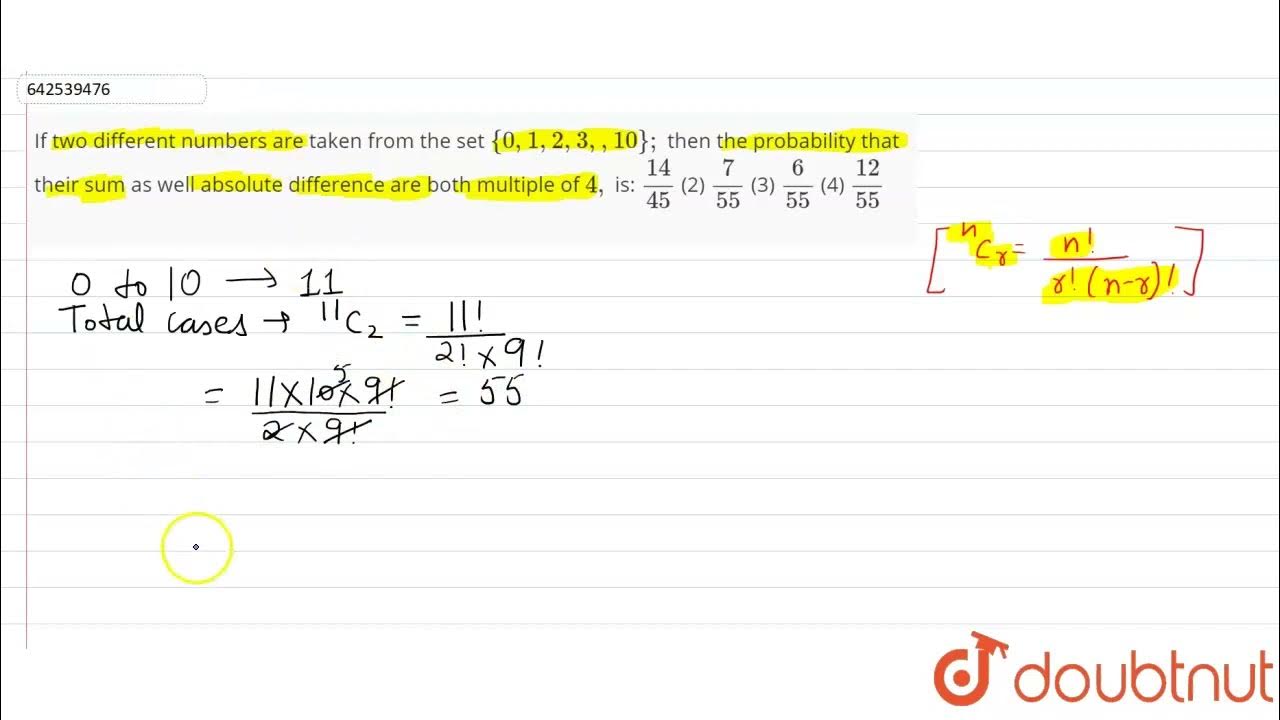 642539476
If two different numbers are taken from the set {0, 1, 2, 3, , 10}; then the probability that
their sum as well absolute difference are both multiple of 4, is: 14/45 (2) 7/55 (3) 6/55 (4) 12/55
[ⁿCᵣ = n!/r!(n-r)!]
0 to 10 → 11
Total cases → ¹¹C₂ = 11!/2! × 9!
= 11×10×9!/2×9! = 55
5
doubtnut